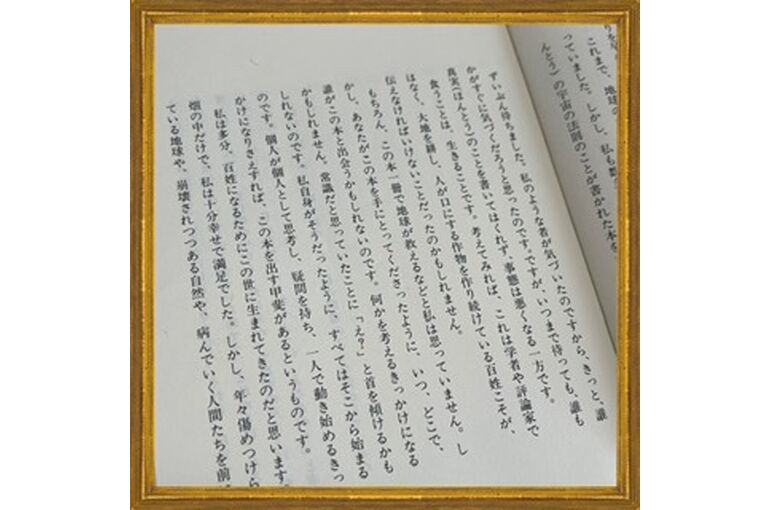 りを
これまで、地球の
っていました。しかし、私も数
んとう)の宇宙の法則のことが書かれた本を
ずいぶん待ちました。私のような者が気づいたのですから、きっと、誰
かがすぐに気づくだろうと思ったのです。ですが、いつまで待っても、誰も
真実(ほんとう)のことを書いてはくれず、事態は悪くなる一方です。
食うことは、生きることです。考えてみれば、これは学者や評論家で
はなく、大地を耕し、人が口にする作物を作り続けている百姓こそが、
伝えなければいけないことだったのかもしれません。
もちろん、この本一冊で地球が救えるなどと私は思っていません。し
かし、あなたがこの本を手にとってくださったように、いつ、どこで、
誰がこの本と出会うかもしれないのです。何かを考えるきっかけになる
かもしれません。常識だと思っていたことに「え?」と首を傾けるかも
しれないのです。私自身がそうだったように、すべてはそこから始まる
のです。個人が個人として思考し、疑問を持ち、一人で動き始めるきっ
かけになりさえすれば、この本を出す甲斐があるというものです。
私は多分、百姓になるためにこの世に生まれてきたのだと思います。
畑の中だけで、私は十分幸せで満足でした。しかし、年々傷めつけら
ている地球や、崩壊されつつある自然や、病んでいく人間たちを前